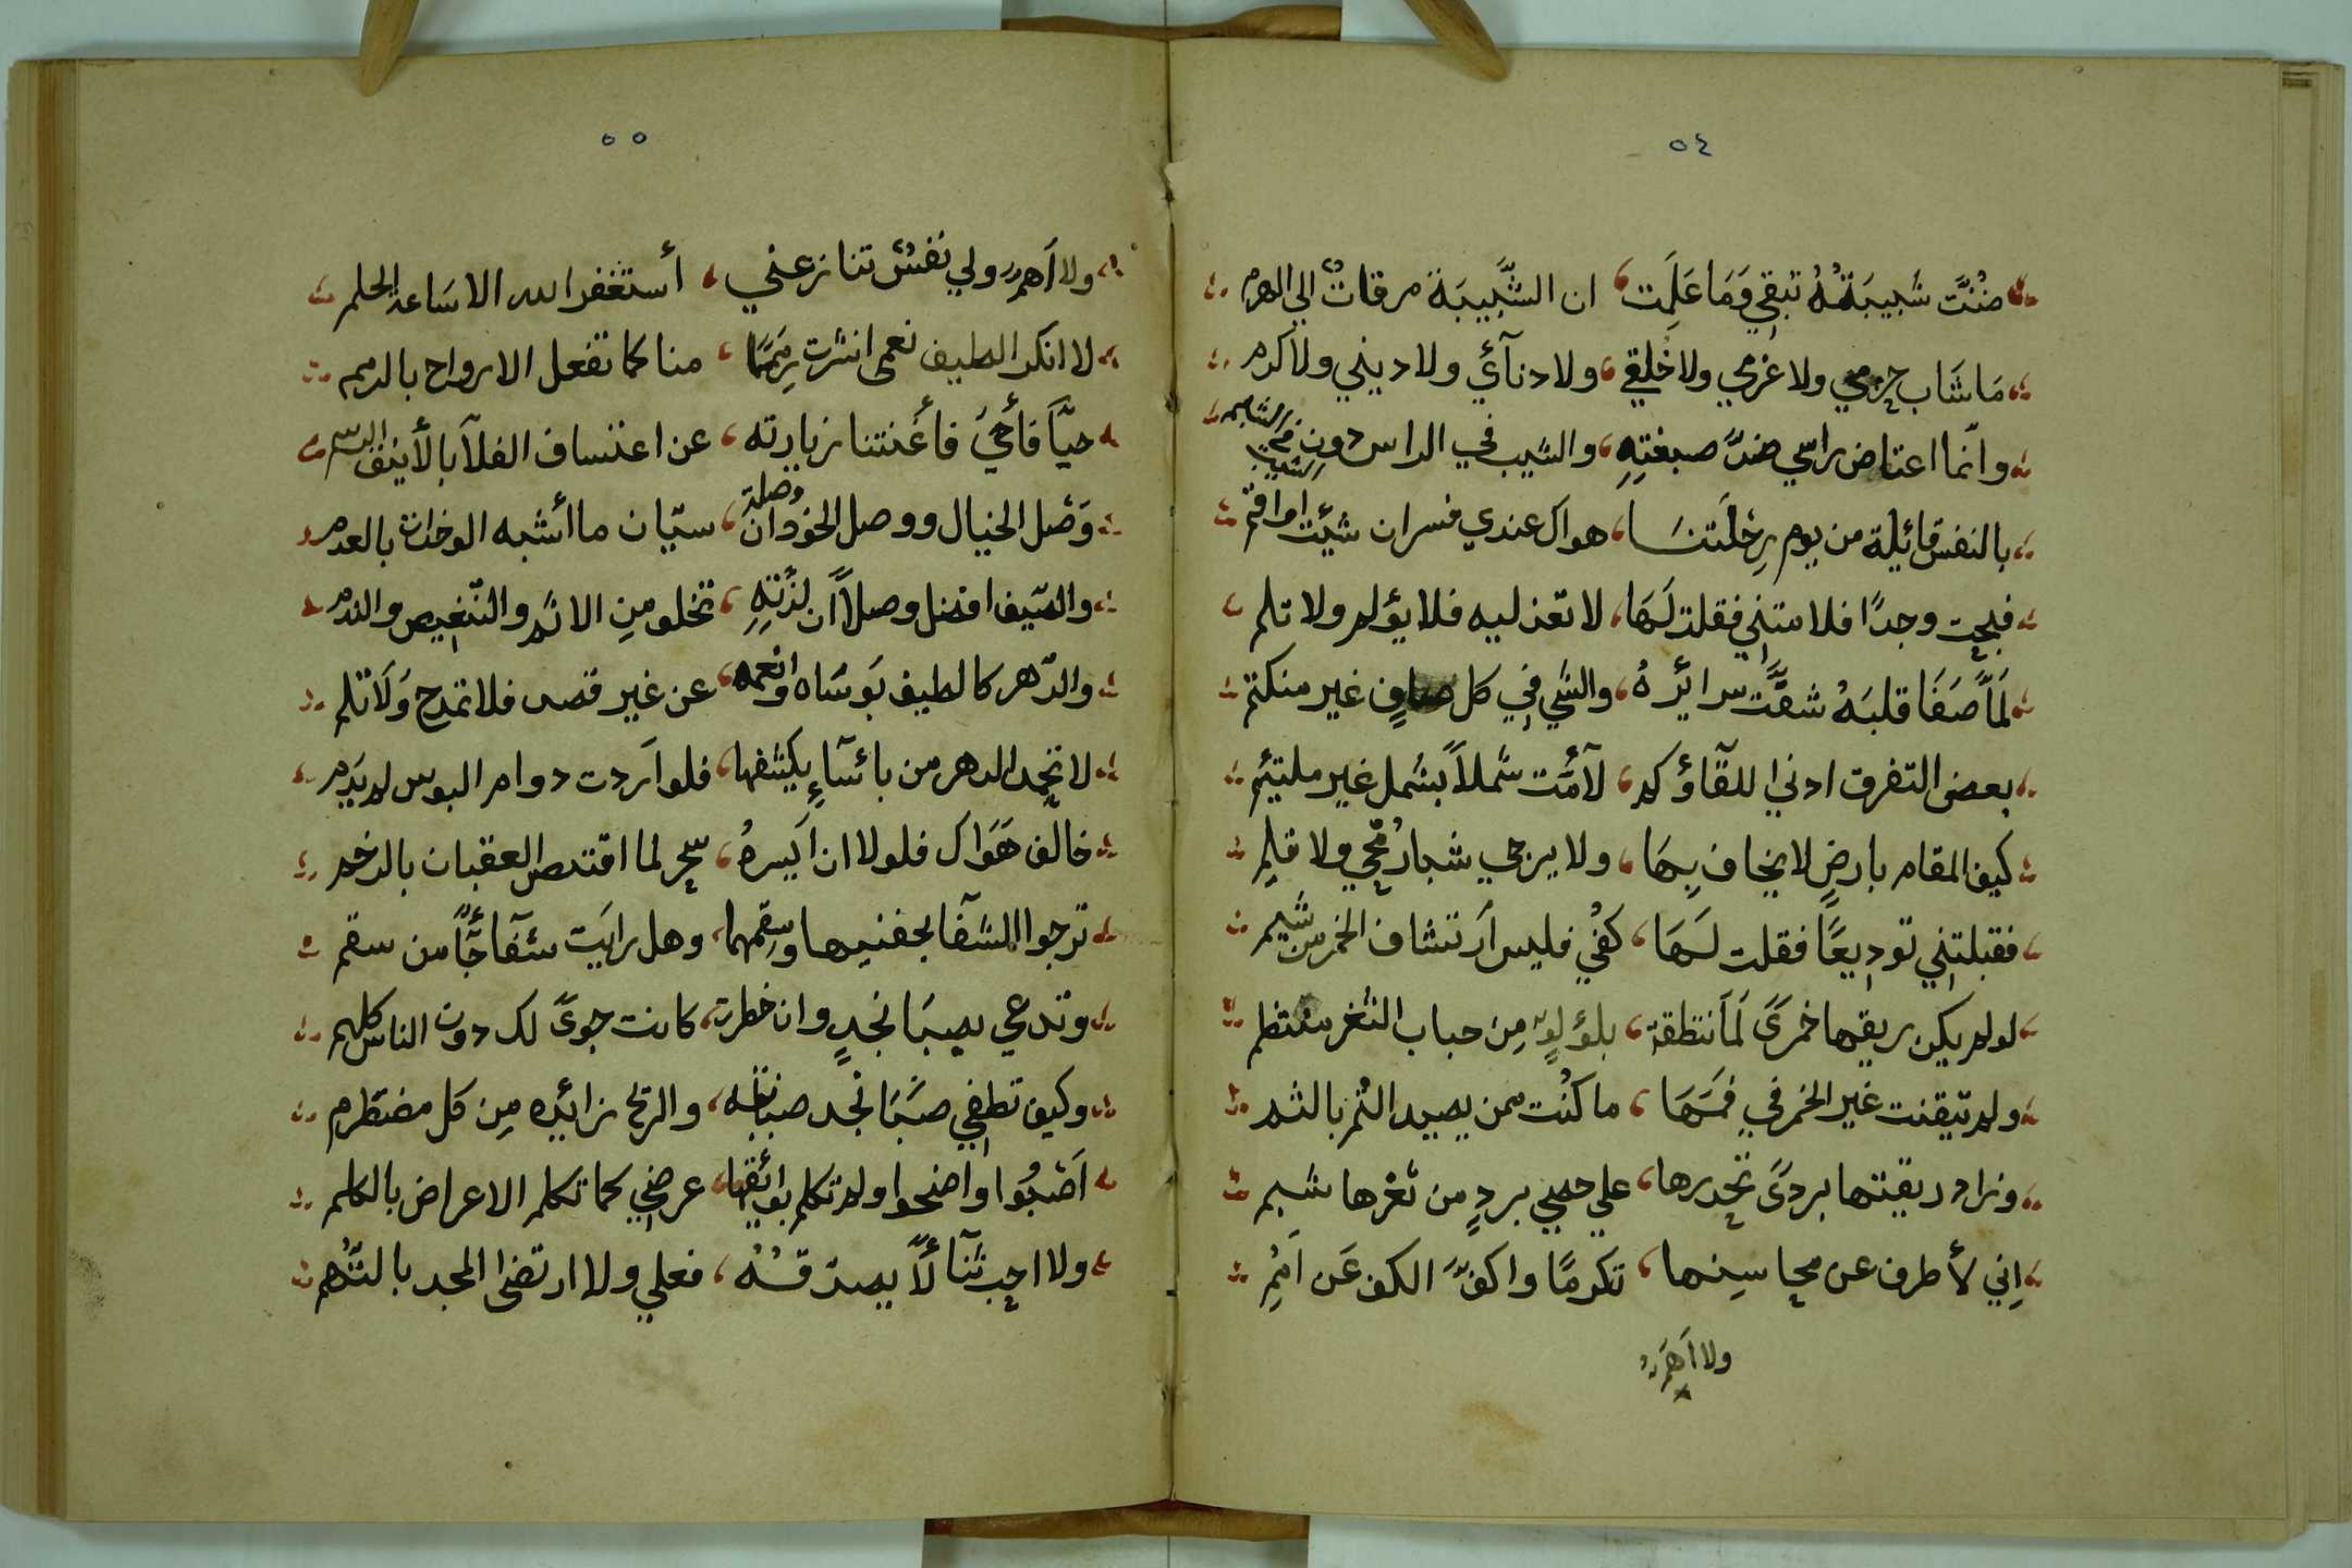 ٥٤
ضنُنَّت شبيبَةٌ تبقي وَمَا عَلِمَت ، ان الشَّبِيبَة مرقاتٌ الي الهرم
مَا شَاب حزمي ولا عزمي ولا خُلقي ، ولا دنآئي ولا ديني ولا كرم
وانّما اعتاض راسي ضدَّ صبغتِهِ ، والشيب في الراس دون
بالنفس قائيلة من يوم رِحْلَتنَا ، هواك عندي فسران شيّت اواقم
فبحت وجدًا فلامتني فقلت لَهَا ، لا تعذليه فلا يؤلم ولا تلم
لَمَّا صَفَا قلبَهُ شفَّت سرائيرهُ ، والشي في كل صافٍ غير منكتم
بعض التفرق ادني اللقآؤ كم ، لآمَّت شملاً بشمل غير ملتيئم
كيف المقام بارضٍ لا يخاف بِهَا ، ولا يرجي شبا رُمحي ولا قلمِ
فقبلتني توديعًا فقلت لَهَا ، كفُي فليس اَرتشاف الخمر من شيم
لو لم يكن ريقها خمرًى لَمَا نتطقة ، بلؤلؤٍ مِن حباب الثغر منتظم
ولم تيقنت غير الخمر في فمَهَا ، ما كنُت ممن يصيد اللثم بالثم
وزاد ريقتها بردًى تحدرها ، علي حصي بردٍ من ثغرها شبم
اِني لأطرف عن محاسِنها ، تكرمًا واكفَّ الكف عَن اَمَمِ
ولا اَهمَُ
٥٥
ولا اَهم ولي نفسٌ تنازعني ، أستغفر الله الا سَاعة الحلم
لا انكر الطيف نعمى انشرت رِمَمًا ، منا كما تفعل الارواح بالرمم
حيَّا فأحيَ فاَغنتنا زيارته ، عن اعتساف الفلا بالأينف الرسم
وَصْل الخيال ووصل الخودان وصلة ، سيّان ما أشبه الوخدان بالعدم
والطيف افضل وصلاً اَن لذَّتِهِ ، تخلو مِن الاثم والتنغيص والندم
والدّهر كالطيف بَوسَاه وانعمه ، عن غير قصد فلا تمدح وَلَا تلم
لا تحمد الدهر من بائسَآءٍ يكشفها ، فلو اَردت دوام البوس لم يَدم
خالف هَوَاك فلولا ان اَيسرهُ ، سحر لما اقتنص العقبان بالرخم
ترجوا الشفآ بجفنيها وسقمهما ، وهل رايت شفآ جاًّ من سقم
وتدعي بصبَا نجدٍ وان خطرت ، كانت جوىً لك دون الناس كلهم
وكيف تطفي صَبَا نجد صبابته ، والريح زائيده مِن كل مضتطرم
اَصْبُوا واضحوا ولم تكلم بوائقها ، عرضي كما تكلم الاعراض بالكلم
ولا احب ثنآئاً لا يصدّقهُ ، فعلي ولا ارتضى المجد بالتُهم